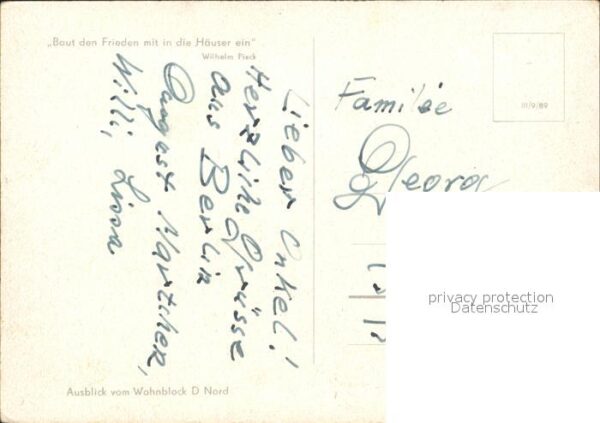 „Baut den Frieden mit in die Häuser ein"
Wilhelm Pieck
Lieber Onkel!
Herzliche Grüsse
aus Berlin
August Martchen,
Willi, Lissa
Familie
Georg
III/9/89
privacy protection
Datenschutz
Ausblick vom Wohnblock D Nord